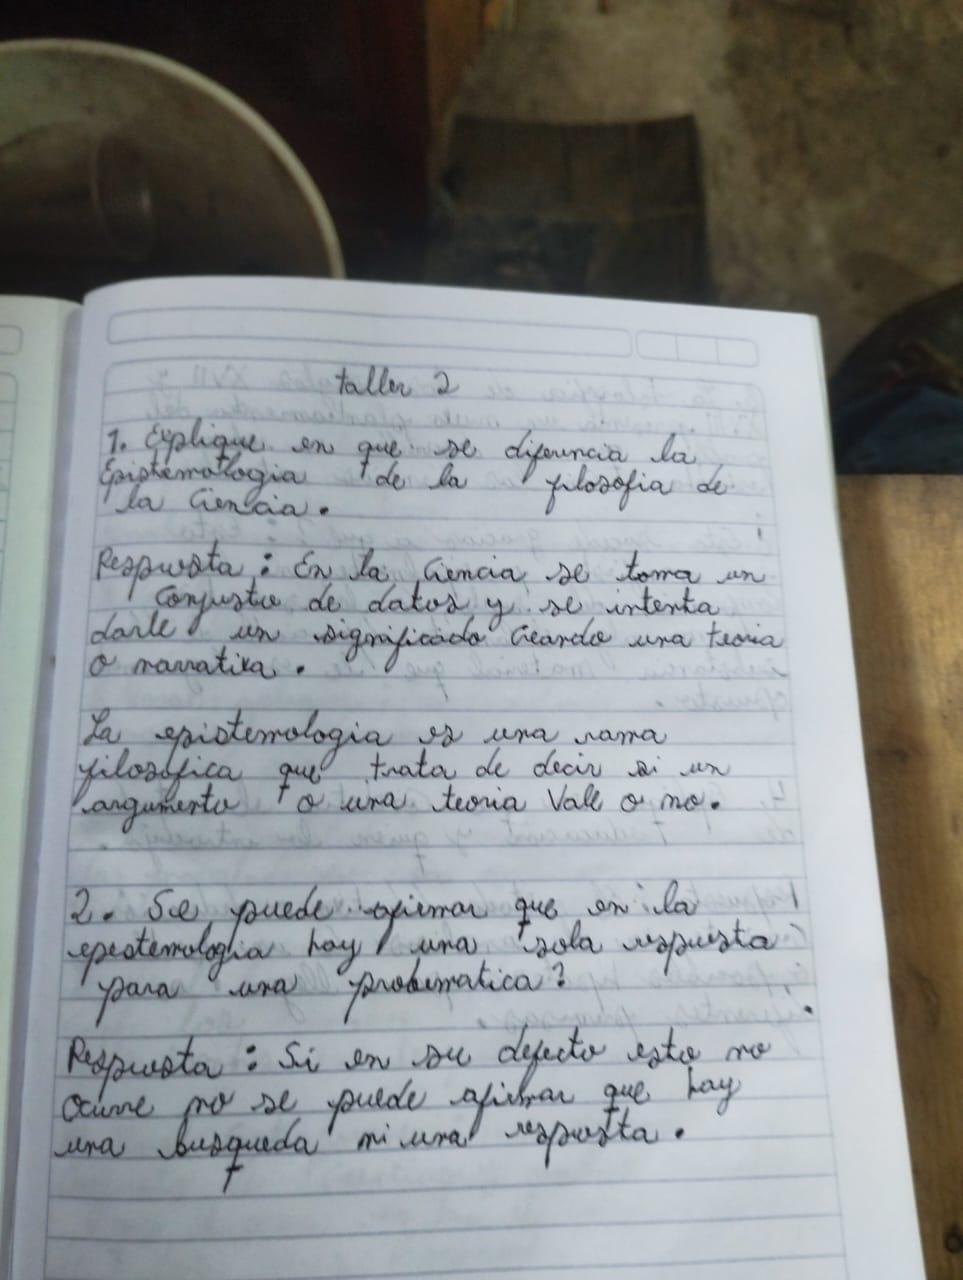 taller 2
1. Explique en que se diferencia la
Epistemologia de la filosofia de
la Ciencia.
Respuesta: En la Ciencia se toma un
Conjusto de datos y se intenta
darle un significado Creando una teoria
o narrativa.
La epistemologia es una rama
filosofica que trata de decir si un
argumento o una teoria Vale o no.
2. Se puede afirmar que en la
epestemologia hay una sola respuesta
para una problematica?
Respuesta: Si en su defecto esto no
ocurre no se puede afirmar que hay
una busqueda ni una respuesta.